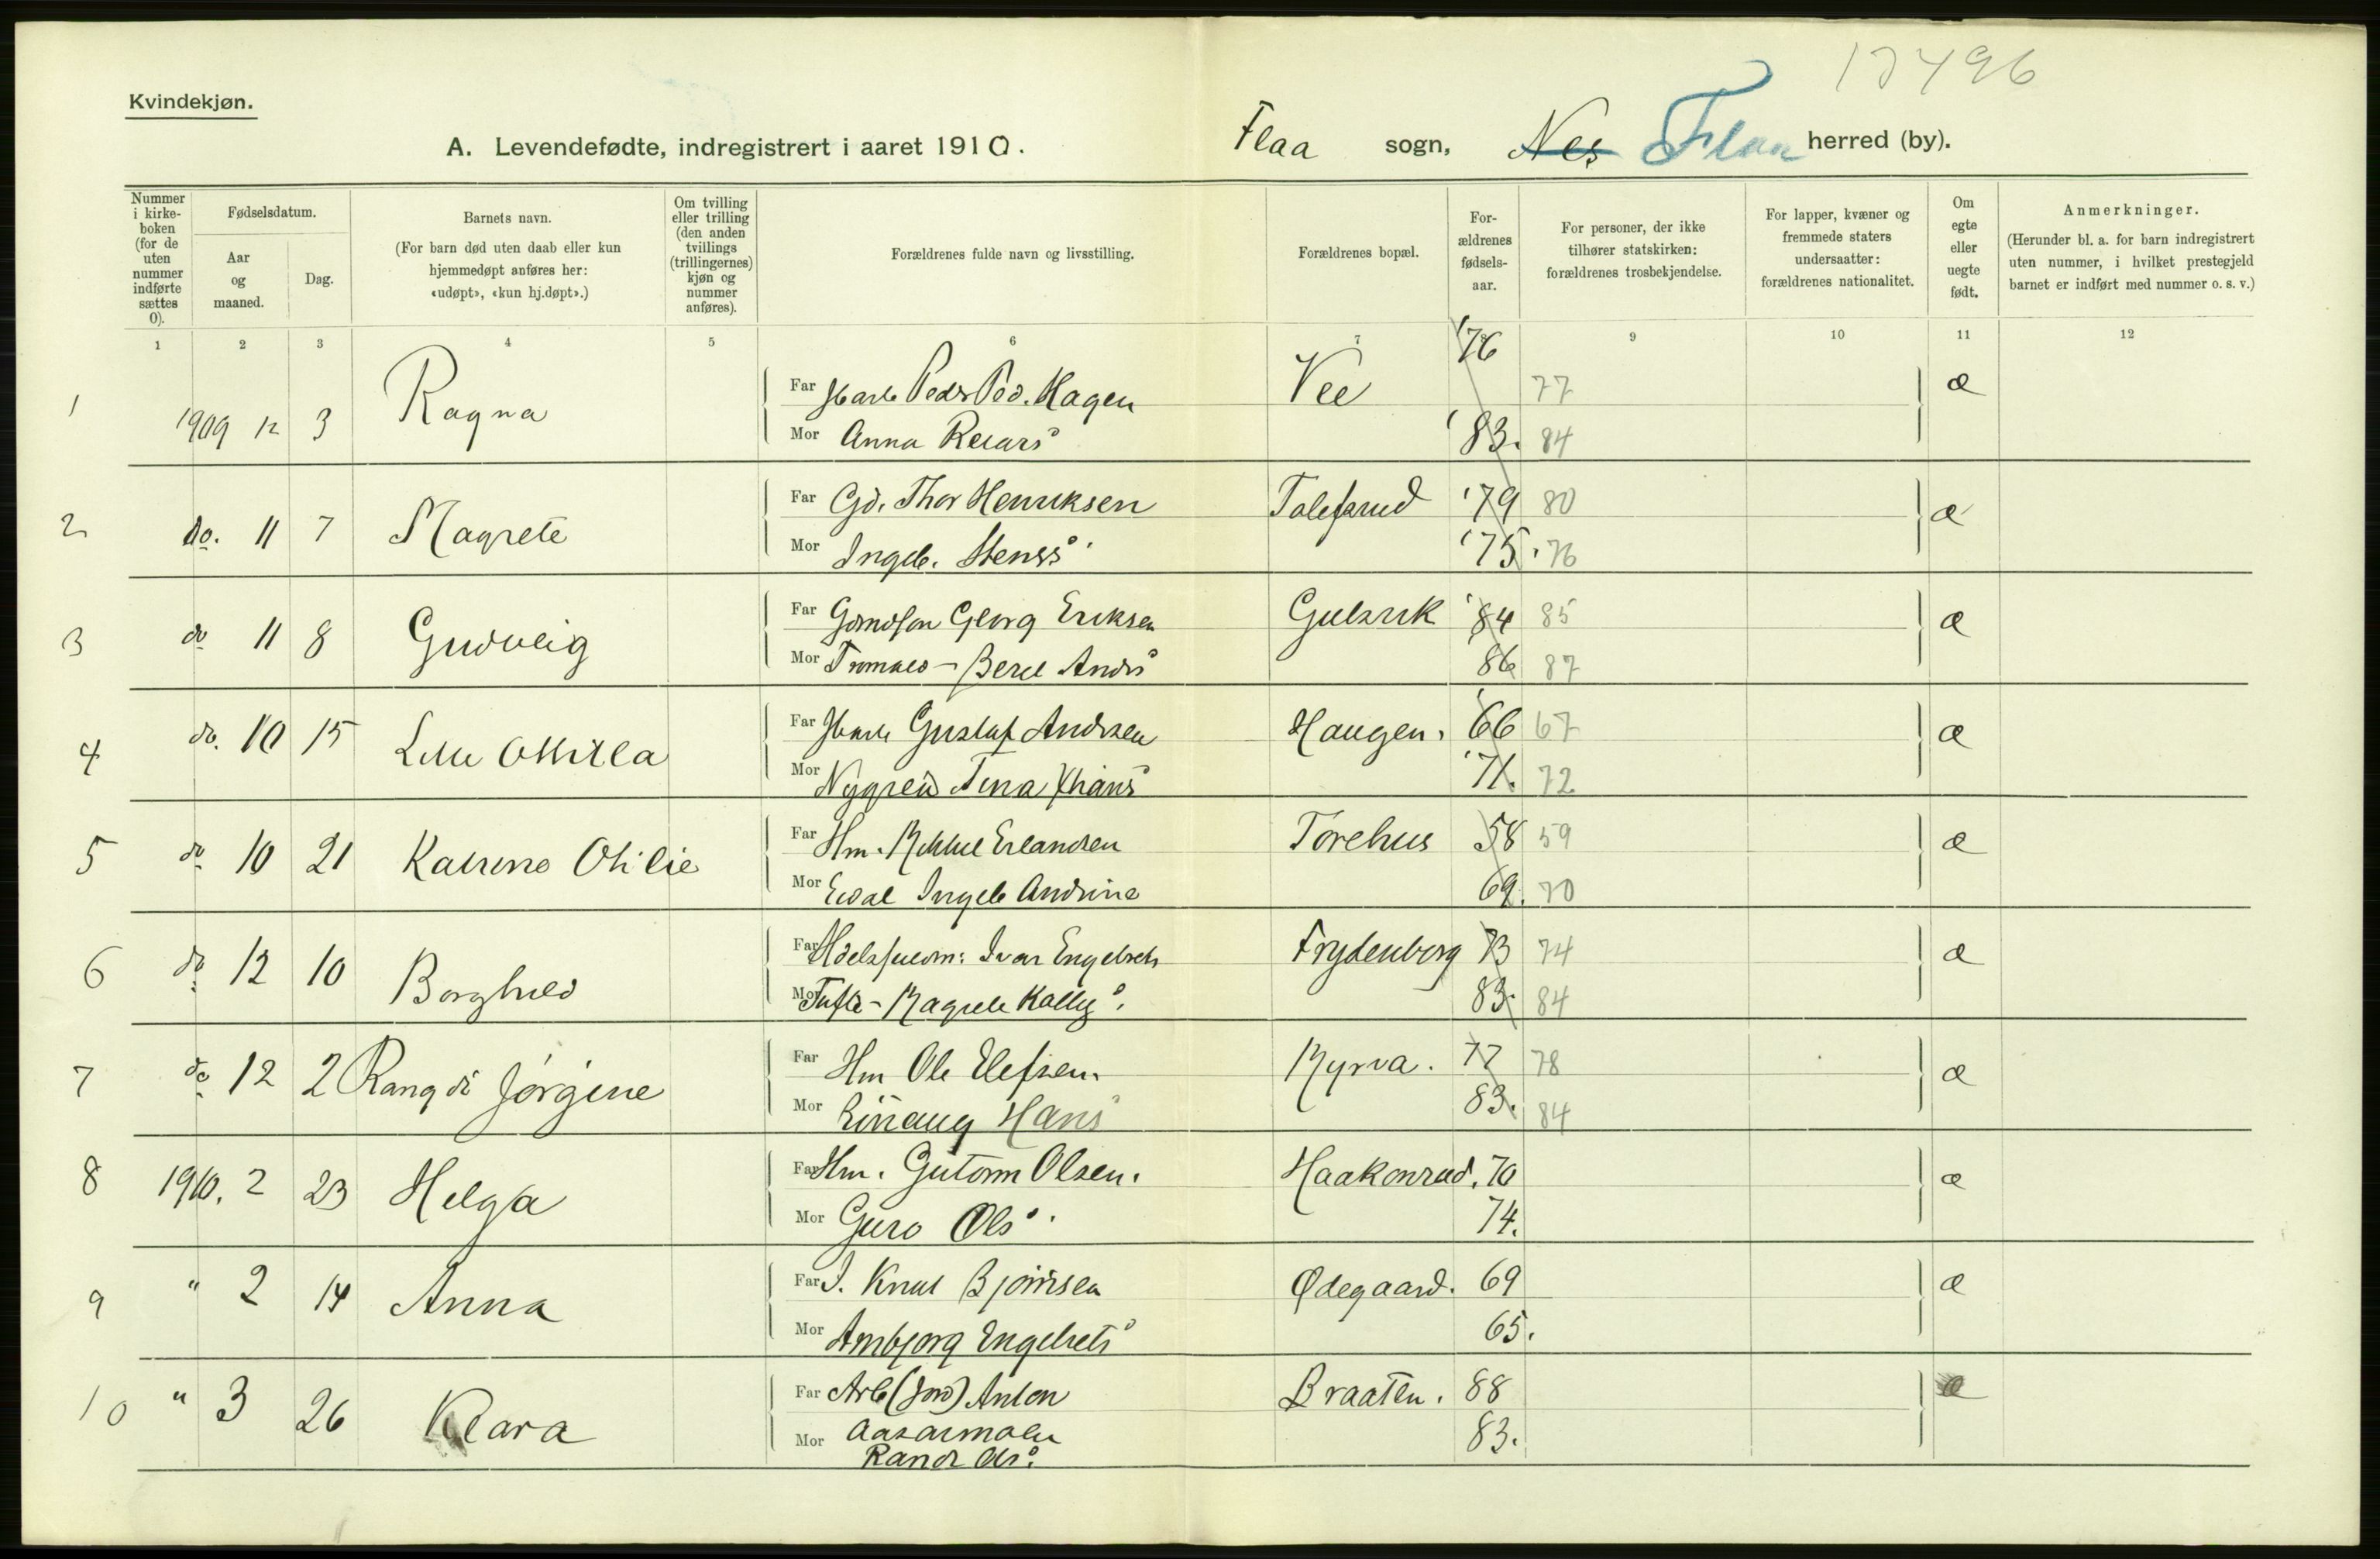 17496
Kvindekjøn.
A. Levendefødte, indregistrert i aaret 1910. Flaa sogn, Nes Flaa herred (by).
Nummer i kirkeboken (for de uten nummer indførte sættes 0).
Fødselsdatum.
Aar og maaned.
Dag.
Barnets navn.
(For barn død uten daab eller kun hjemmedøpt anføres her: «udøpt», «kun hj.døpt».)
Om tvilling eller trilling (den anden tvillings (trillingernes) kjøn og nummer anføres).
Forældrenes fulde navn og livsstilling.
Forældrenes bopæl.
For-ældrenes fødsels-aar.
For personer, der ikke tilhører statskirken: forældrenes trosbekjendelse.
For lapper, kvæner og fremmede staters undersaatter: forældrenes nationalitet.
Om egte eller uegte født.
Anmerkninger.
(Herunder bl. a. for barn indregistrert uten nummer, i hvilket prestegjeld barnet er indført med nummer o. s. v.)
1 2 3 4 5 6 7 8 9 10 11 12
1 1909 12 3 Ragna Far Peder Ped. Hagen Vee '76 77 æ
Mor Anna '83. 84
2 do. 11 7 Magrete Far Gd. Thor Henriksen Tolefsrud '79 80 æ
Mor Ingeb. Stensd '75. 76
3 do 11 8 Gudveig Far Georg Eriksen Gulsvik '84 85 æ
Mor Beret Andrsd 86 87
4 do. 10 15 Far Gustaf Andrsen Haugen. '66 67 æ
Mor Nygren Tina '71. 72
5 do 10 21 Katrine Otilie Far Hm. Mikkel Erlandsen Torehus 58 59 æ
Mor Ingeb Andrine 69. 70
6 do 12 10 Borghild Far Ivar Engebrets Frydenberg 73 74 æ
Mor Tufte - Magrete 83. 84
7 do 12 2 Rangdi Jørgine Far Hm Ole Elefsen. Myrva. 77 78 æ
Mor Linaug Hansd 83. 84
8 1910. 2 23 Helga Far Hm. Gutorm Olsen. Haakonrud. 70 æ
Mor Guro Olsd. 74.
9 " 2 14 Anna Far I. Knut Bjørnsen Ødegaard. 69 æ
Mor Ambjørg Engebretsd 65.
10 " 3 26 Klara Far Arb (Jord) Anton Braaten. 88 æ
Mor Aasarmoen 83.
Randi Olsd.